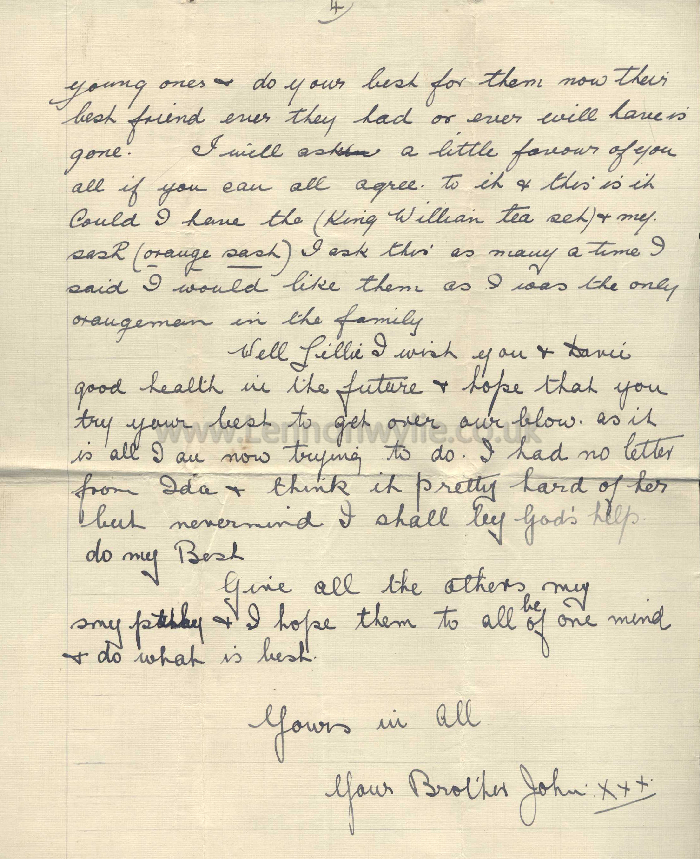 4
young ones & do your best for them now their
best friend ever they had or ever will have is
gone. I will ask a little favour of you
all if you can all agree. to it & this is it
Could I have the (King Willian tea set) & my.
sash (orange sash) I ask this as many a time I
said I would like them as I was the only
orangeman in the family
Well Lillie I wish you & Davie
good health in the future & hope that you
try your best to get over our blow. as it
is all I au now trying to do. I had no letter
www.Lennonwylie.co.uk
from Ida & think it pretty hard of her
but nevermind I shall by God's help.
do my Best
Give all the others my
smypathy & I hope them to all be of one mind
& do what is best.
Yours in All
Your Brother John xxx.